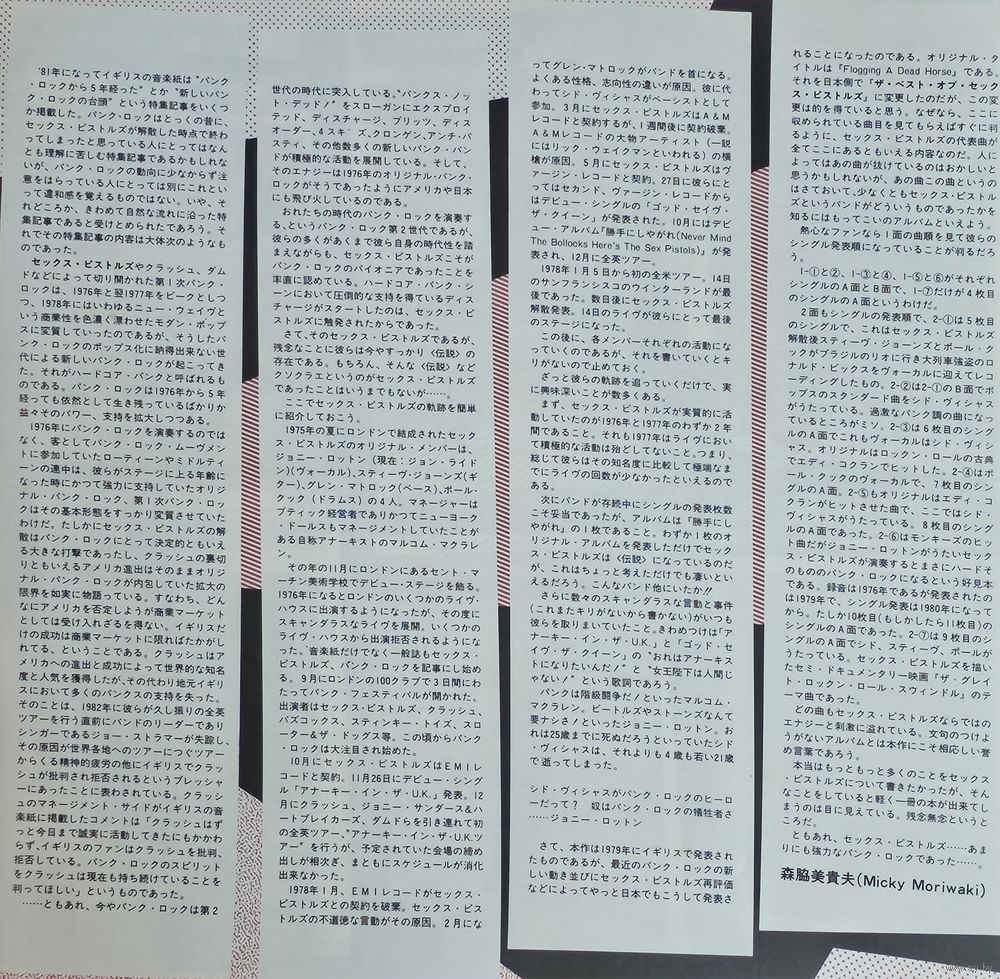 '81年になってイギリスの音楽紙は“パンク
・ロックから5年経った”とか“新しいパン
ク・ロックの台頭”という特集記事をいくつ
か掲載した。パンク・ロックはとっくの昔に、
セックス・ピストルズが解散した時点で終わ
ってしまったと思っている人にとってはなん
とも理解に苦しむ特集記事であるかもしれな
いが、パンク・ロックの動向に少なからず注
意をはらっている人にとっては別にこれとい
って違和感を覚えるものではない。いや、そ
れどころか、きわめて自然な流れに沿った特
集記事であると受けとめられたであろう。そ
れでその特集記事の内容は大体次のようなも
のであった。
セックス・ピストルズやクラッシュ、ダム
ドなどによって切り開かれた第1次パンク・
ロックは、1976年と翌1977年をピークとしつ
つ、1978年にはいわゆるニュー・ウェイヴと
いう商業性を色濃く漂わせたモダン・ポップ
スに変質していったのであるが、そうしたパ
ンク・ロックのポップス化に納得出来ない世
代による新しいパンク・ロックが起こってき
た。それがハードコア・パンクと呼ばれるも
のである。パンク・ロックは1976年から5年
経っても依然として生き残っているばかりか
益々そのパワー、支持を拡大しつつある。
1976年にパンク・ロックを演奏するのでは
なく、客としてパンク・ロック・ムーヴメン
トに参加していたローティーンやミドルティ
ーンの連中は、彼らがステージに上る年齢に
なった時にかつて強力に支持していたオリジ
ナル・パンク・ロック、第1次パンク・ロッ
クはその基本形態をすっかり変質させていた
わけだ。たしかにセックス・ピストルズの解
散はパンク・ロックにとって決定的ともいえ
る大きな打撃であったし、クラッシュの裏切
りともいえるアメリカ進出はそのままオリジ
ナル・パンク・ロックが内包していた拡大の
限界を如実に物語っている。すなわち、どん
なにアメリカを否定しようが商業マーケット
としては受け入れざるを得ない。イギリスだ
けの成功は商業マーケットに限ればたかがし
れてる、ということである。クラッシュはア
メリカへの進出と成功によって世界的な知名
度と人気を獲得したが、その代わり地元イギリ
スにおいて多くのパンクスの支持を失った。
そのことは、1982年に彼らが久し振りの全英
ツアーを行う直前にバンドのリーダーであり
シンガーであるジョー・ストラマーが失踪し、
その原因が世界各地へのツアーにつぐツアー
からくる精神的疲労の他にイギリスでクラッ
シュが批判され拒否されるというプレッシャ
ーにあったことに表わされている。クラッシ
ュのマネージメント・サイドがイギリスの音
楽紙に掲載したコメントは「クラッシュはず
っと今日まで誠実に活動してきたにもかかわ
らず、イギリスのファンはクラッシュを批判、
拒否している。パンク・ロックのスピリット
をクラッシュは現在も持ち続けていることを
判ってほしい」というものであった。
……ともあれ、今やパンク・ロックは第2
世代の時代に突入している。“パンクス・ノッ
ト・デッド!”をスローガンにエクスプロイ
テッド、ディスチャージ、ブリッツ、ディス
オーダー、4スキンズ、クロンゲン、アンチ・パ
スティ、その他数多くの新しいパンク・バン
ドが積極的な活動を展開している。そして、
そのエナジーは1976年のオリジナル・パンク・
ロックがそうであったようにアメリカや日本
にも飛び火しているのである。
おれたちの時代のパンク・ロックを演奏す
る、というパンク・ロック第2世代であるが、
彼らの多くがあくまで彼ら自身の時代性を踏
まえながらも、セックス・ピストルズこそが
パンク・ロックのパイオニアであったことを
率直に認めている。ハードコア・パンク・シ
ーンにおいて圧倒的な支持を得ているディス
チャージがスタートしたのは、セックス・ピ
ストルズに触発されたからであった。
さて、そのセックス・ピストルズであるが、
残念なことに彼らは今やすっかり〈伝説〉の
存在である。もちろん、そんな〈伝説〉など
クソクラエというのがセックス・ピストルズ
であったことはいうまでもないが……。
ここでセックス・ピストルズの軌跡を簡単
に紹介しておこう。
1975年の夏にロンドンで結成されたセック
ス・ピストルズのオリジナル・メンバーは、
ジョニー・ロットン（現在：ジョン・ライド
ン)(ヴォーカル)、スティーヴ・ジョーンズ(ギ
ター)、グレン・マトロック(ベース)、ポール・
クック（ドラムス）の4人。マネージャーは
ブティック経営者でありかつてニューヨーク
・ドールスもマネージメントしていたことが
ある自称アナーキストのマルコム・マクラレ
ン。
その年の11月にロンドンにあるセント・マ
ーチン美術学校でデビュー・ステージを飾る。
1976年になるとロンドンのいくつかのライヴ・
ハウスに出演するようになったが、その度に
スキャンダラスなライヴを展開。いくつかの
ライヴ・ハウスから出演拒否されるようにな
った。音楽紙だけでなく一般誌もセックス・
ピストルズ、パンク・ロックを記事にし始め
る。9月にロンドンの100クラブで3日間にわ
たってパンク・フェスティバルが開かれた。
出演者はセックス・ピストルズ、クラッシュ、
バズコックス、スティンキー・トイズ、スロ
ーター&ザ・ドッグス等。この頃からパンク
・ロックは大注目され始めた。
10月にセックス・ピストルズはEMIレ
コードと契約。11月26日にデビュー・シング
ル「アナーキー・イン・ザ・U.K.」発表。12
月にクラッシュ、ジョニー・サンダース&ハ
ートブレイカーズ、ダムドらを引き連れて初
の全英ツアー、“アナーキー・イン・ザ・U.K.ツ
アー”を行うが、予定されていた会場の締め
出しが相次ぎ、まともにスケジュールが消化
出来なかった。
1978年1月、EMIレコードがセックス・
ピストルズとの契約を破棄。セックス・ピス
トルズの不道徳な言動がその原因。2月にな
ってグレン・マトロックがバンドを首になる。
よくある性格、志向性の違いが原因。彼に代
わってシド・ヴィシャスがベーシストとして
参加。3月にセックス・ピストルズはA&M
レコードと契約するが、1週間後に契約破棄。
A&Mレコードの大物アーティスト（一説
にはリック・ウェイクマンといわれる）の横
槍が原因。5月にセックス・ピストルズはヴ
ァージン・レコードと契約。27日に彼らにと
ってはセカンド、ヴァージン・レコードから
はデビュー・シングルの「ゴッド・セイヴ・
ザ・クイーン」が発表された。10月にはデビ
ュー・アルバム「勝手にしやがれ(Never Mind
The Bollooks Here's The Sex Pistols)」が発
表され、12月に全英ツアー。
1978年1月5日から初の全米ツアー。14日
のサンフランシスコのウィンターランドが最
後であった。数日後にセックス・ピストルズ
解散発表。14日のライヴが彼らにとって最後
のステージになった。
この後に、各メンバーそれぞれの活動にな
っていくのであるが、それを書いていくとキ
リがないので止めておく。
ざっと彼らの軌跡を追っていくだけで、実
に興味深いことが数多くある。
まず、セックス・ピストルズが実質的に活
動していたのが1976年と1977年のわずか2年
間であること。それも1977年はライヴにおい
て積極的な活動は殆どしてないこと。つまり、
総じて彼らはその知名度に比較して極端なま
でにライヴの回数が少なかったといえるので
ある。
次にバンドが存続中にシングルの発表枚数
こそ妥当であったが、アルバムは「勝手にし
やがれ」の1枚であること。わずか1枚のオ
リジナル・アルバムを発表しただけでセック
ス・ピストルズは〈伝説〉になっているのだ
が、これはちょっと考えただけでも凄いとい
えるだろう。こんなバンド他にいたか!!
さらに数々のスキャンダラスな言動と事件
(これまたキリがないから書かない)がいつも
彼らを取りまいていたこと。きわめつけは「ア
ナーキー・イン・ザ・U.K.」と「ゴッド・セ
イヴ・ザ・クイーン」の“おれはアナーキス
トになりたいんだ!”と“女王陛下は人間じ
ゃない!”という歌詞であろう。
パンクは階級闘争だ!といったマルコム・
マクラレン。ビートルズやストーンズなんて
要ナシさ!といったジョニー・ロットン。お
れは25歳までに死ぬだろうといっていたシド
・ヴィシャスは、それよりも4歳も若い21歳
で逝ってしまった。
シド・ヴィシャスがパンク・ロックのヒーロ
ーだって？　奴はパンク・ロックの犠牲者さ
……ジョニー・ロットン
さて、本作は1979年にイギリスで発表され
たものであるが、最近のパンク・ロックの新
しい動き並びにセックス・ピストルズ再評価
などによってやっと日本でもこうして発表さ
れることになったのである。オリジナル・タ
イトルは「Flogging A Dead Horse」である。
それを日本側で「ザ・ベスト・オブ・セック
ス・ピストルズ」に変更したのだが、この変
更は的を得ていると思う。なぜなら、ここに
収められている曲目を見てもらえばすぐに判
るように、セックス・ピストルズの代表曲が
全てここにあるともいえる内容なのだ。人に
よってはあの曲が抜けているのはおかしいと
思うかもしれないが、あの曲この曲というの
はさておいて、少なくともセックス・ピストル
ズというバンドがどういうものであったかを
知るにはもってこいのアルバムといえよう。
熱心なファンなら1面の曲順を見て彼らの
シングル発表順になっていることが判るだろ
う。
1-①と②、1-③と④、1-⑤と⑥がそれぞれ
シングルのA面とB面で、1-⑦だけが4枚目
のシングルのA面というわけだ。
2面もシングルの発表順で、2-①は5枚目
のシングルで、これはセックス・ピストルズ
解散後スティーヴ・ジョーンズとポール・ク
ックがブラジルのリオに行き大列車強盗のロ
ナルド・ビックスをヴォーカルに迎えてレコ
ーディングしたもの。2-②は2-①のB面でポ
ップスのスタンダード曲をシド・ヴィシャス
がうたっている。過激なパンク調の曲になっ
ているところがミソ。2-③は6枚目のシング
ルのA面でこれもヴォーカルはシド・ヴィシ
ャス。オリジナルはロックン・ロールの古典
でエディ・コクランでヒットした。2-④はポ
ール・クックのヴォーカルで、7枚目のシン
グルのA面。2-⑤もオリジナルはエディ・コ
クランがヒットさせた曲で、ここではシド・
ヴィシャスがうたっている。8枚目のシング
ルのA面であった。2-⑥はモンキーズのヒッ
ト曲だがジョニー・ロットンがうたいセック
ス・ピストルズが演奏するとまさにハードそ
のもののパンク・ロックになるという好見本
である。録音は1976年であるが発表されたの
は1979年で、シングル発表は1980年になって
から。たしか10枚目(もしかしたら11枚目)の
シングルのA面であった。2-⑦は9枚目のシ
ングルのA面でシド、スティーヴ、ポールが
うたっている。セックス・ピストルズを描い
たセミ・ドキュメンタリー映画「ザ・グレイ
ト・ロックン・ロール・スウィンドル」のテ
ーマ曲であった。
どの曲もセックス・ピストルズならではの
エナジーと刺激に溢れている。文句のつけよ
うがないアルバムとは本作にこそ相応しい誉
め言葉であろう。
本当はもっともっと多くのことをセックス
・ピストルズについて書きたかったが、そん
なことをしていると軽く一冊の本が出来てし
まうのは目に見えている。残念無念というと
ころだ。
ともあれ、セックス・ピストルズ……あま
りにも強力なパンク・ロックであった……。
森脇美貴夫(Micky Moriwaki)